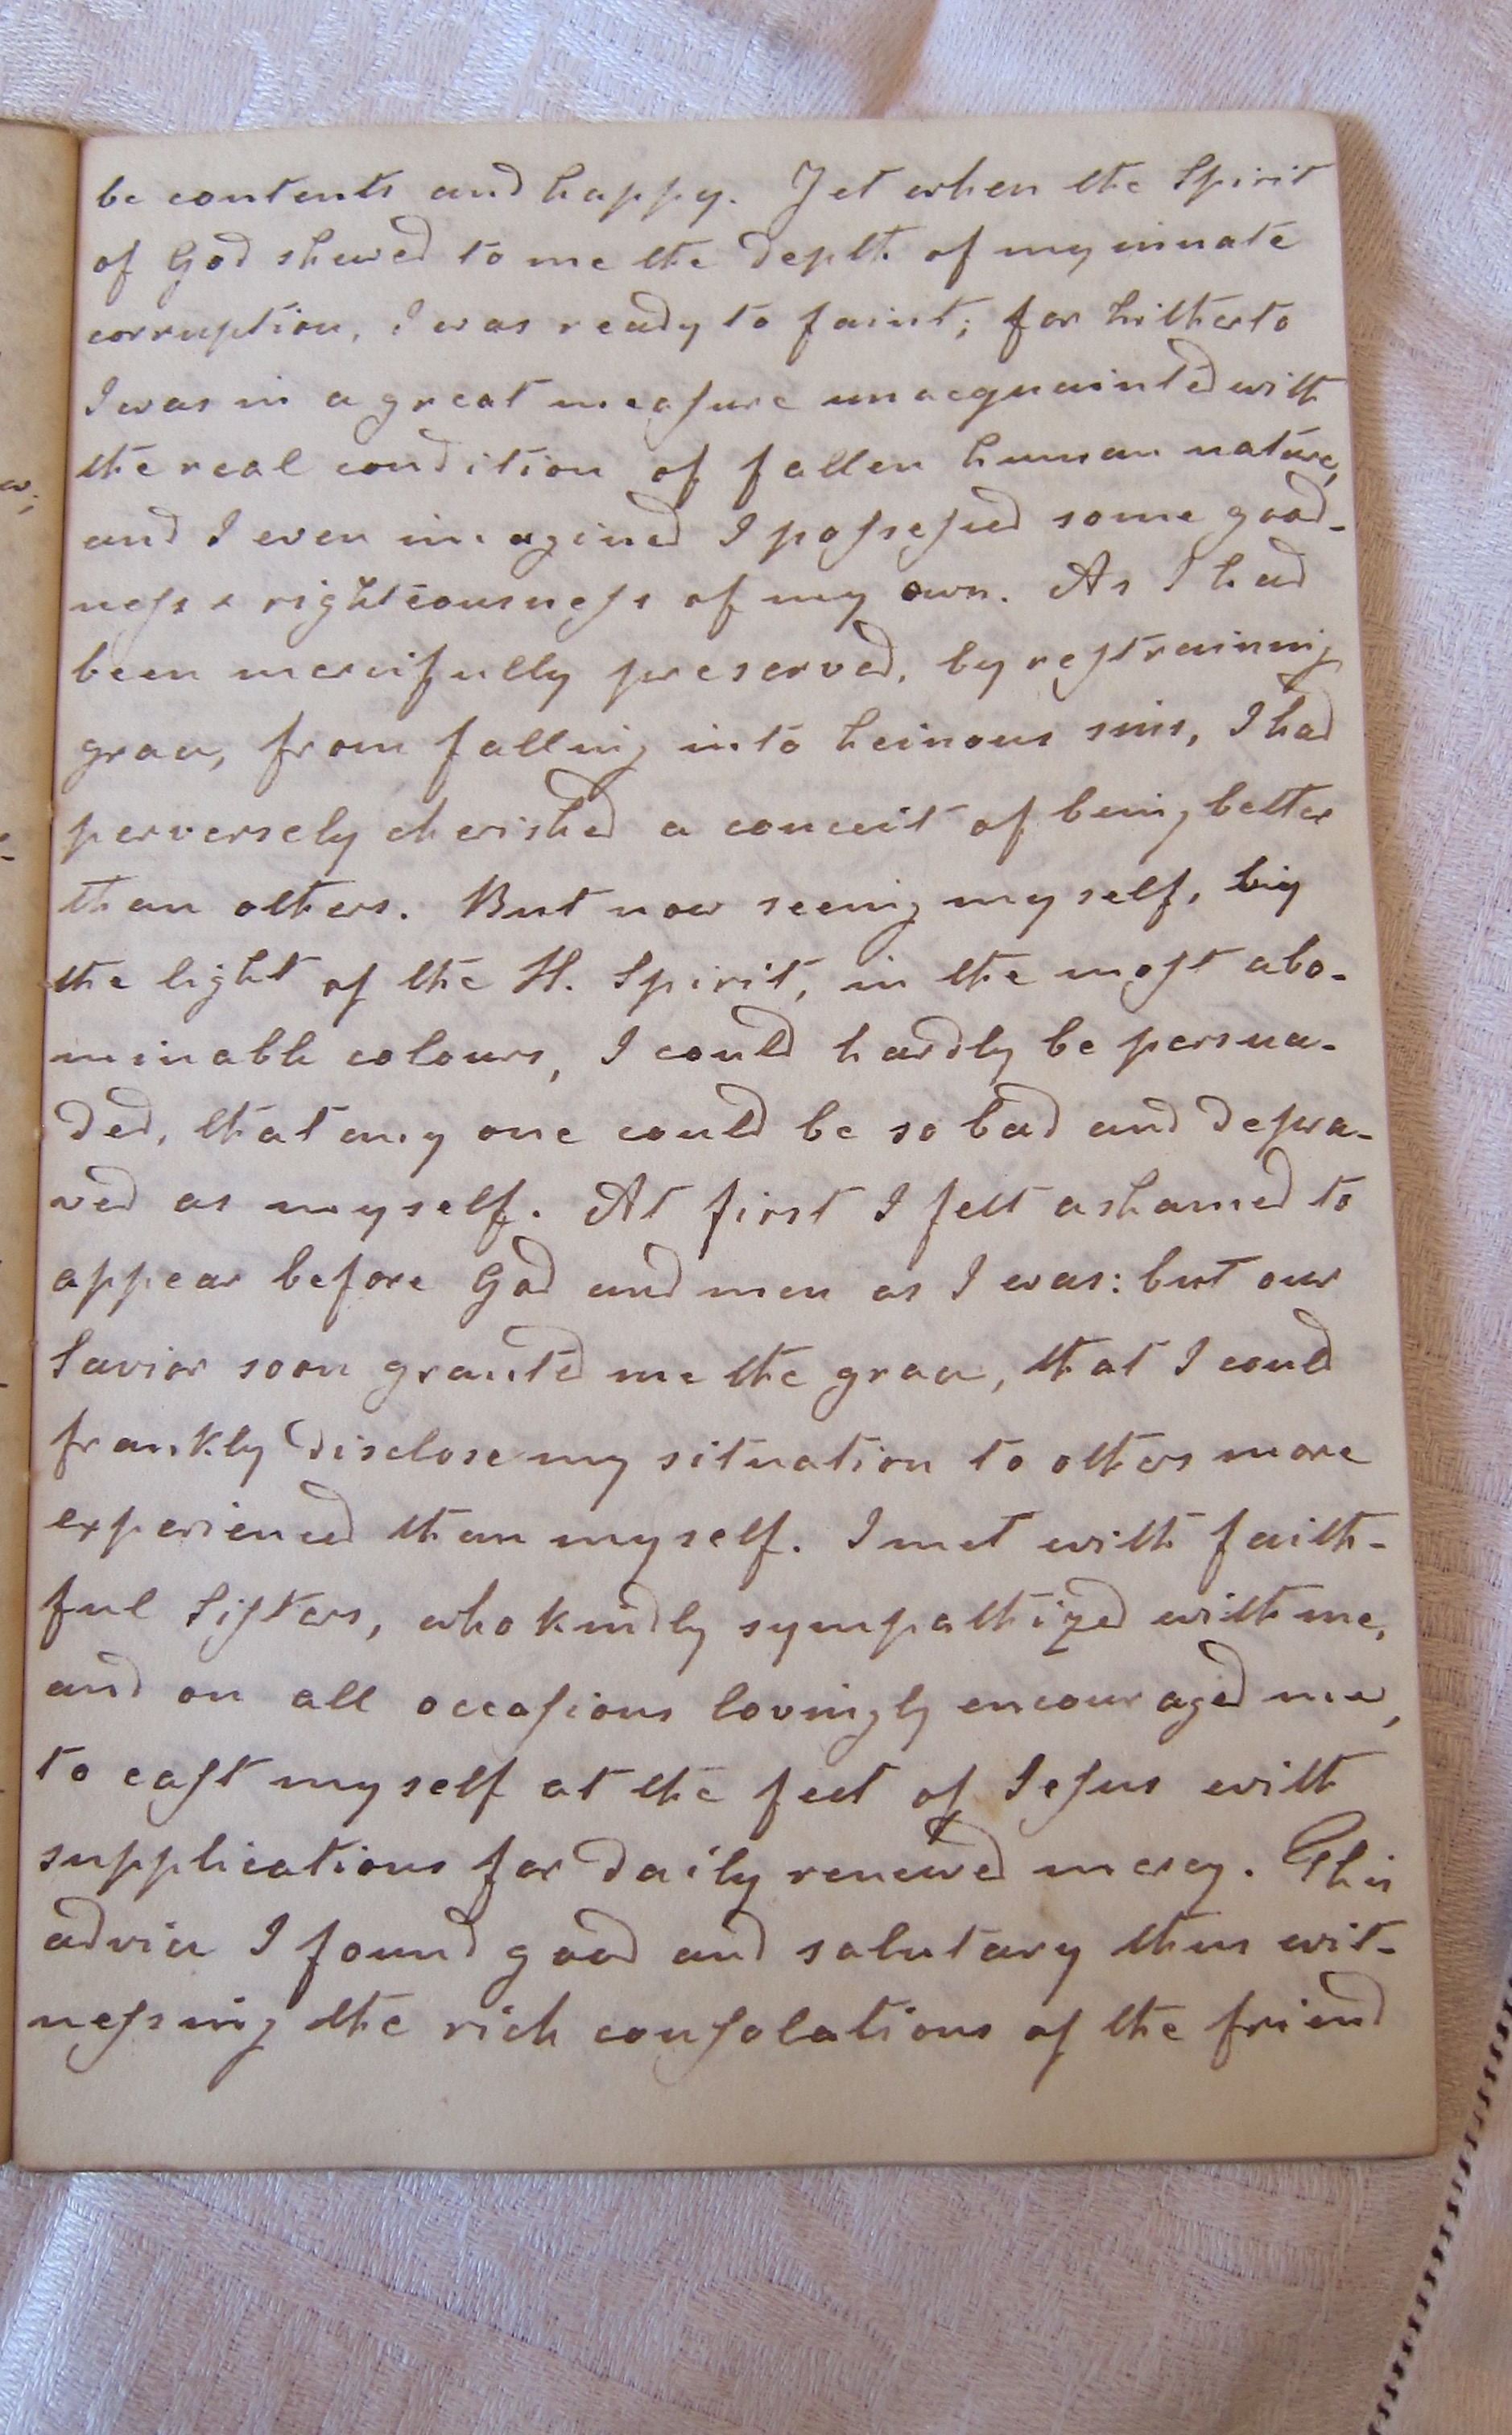 be contents and happy. Yet when the Spirit
of God shewed to me the depth of my innate
corruption, I was ready to faint; for hitherto
I was in a great meaſure unacquainted with
the real condition of fallen human nature,
and I even imagined I poſseſsed some good-
neſs & righteousneſs of my own. As I had
been mercifully preserved, by reſtraining
grace, from falling into heinous sins, I had
perversely cherished a conceit of being better
than others. But now seeing myself, by
the light of the H. Spirit, in the moſt abo-
minable colours, I could hardly be persua-
ded, that any one could be so bad and depra-
ved as myself. At first I felt ashamed to
appear before God and men as I was: but our
Savior soon granted me the grace, that I could
frankly disclose my situation to others more
experienced than myself. I met with faith-
ful Siſters, who kindly sympathized with me,
and on all occaſions lovingly encouraged me,
to caſt myself at the feet of Jeſus with
supplications for daily renewed mercy. This
advice I found good and salutary thus wit-
neſsing the rich conſolations of the friend